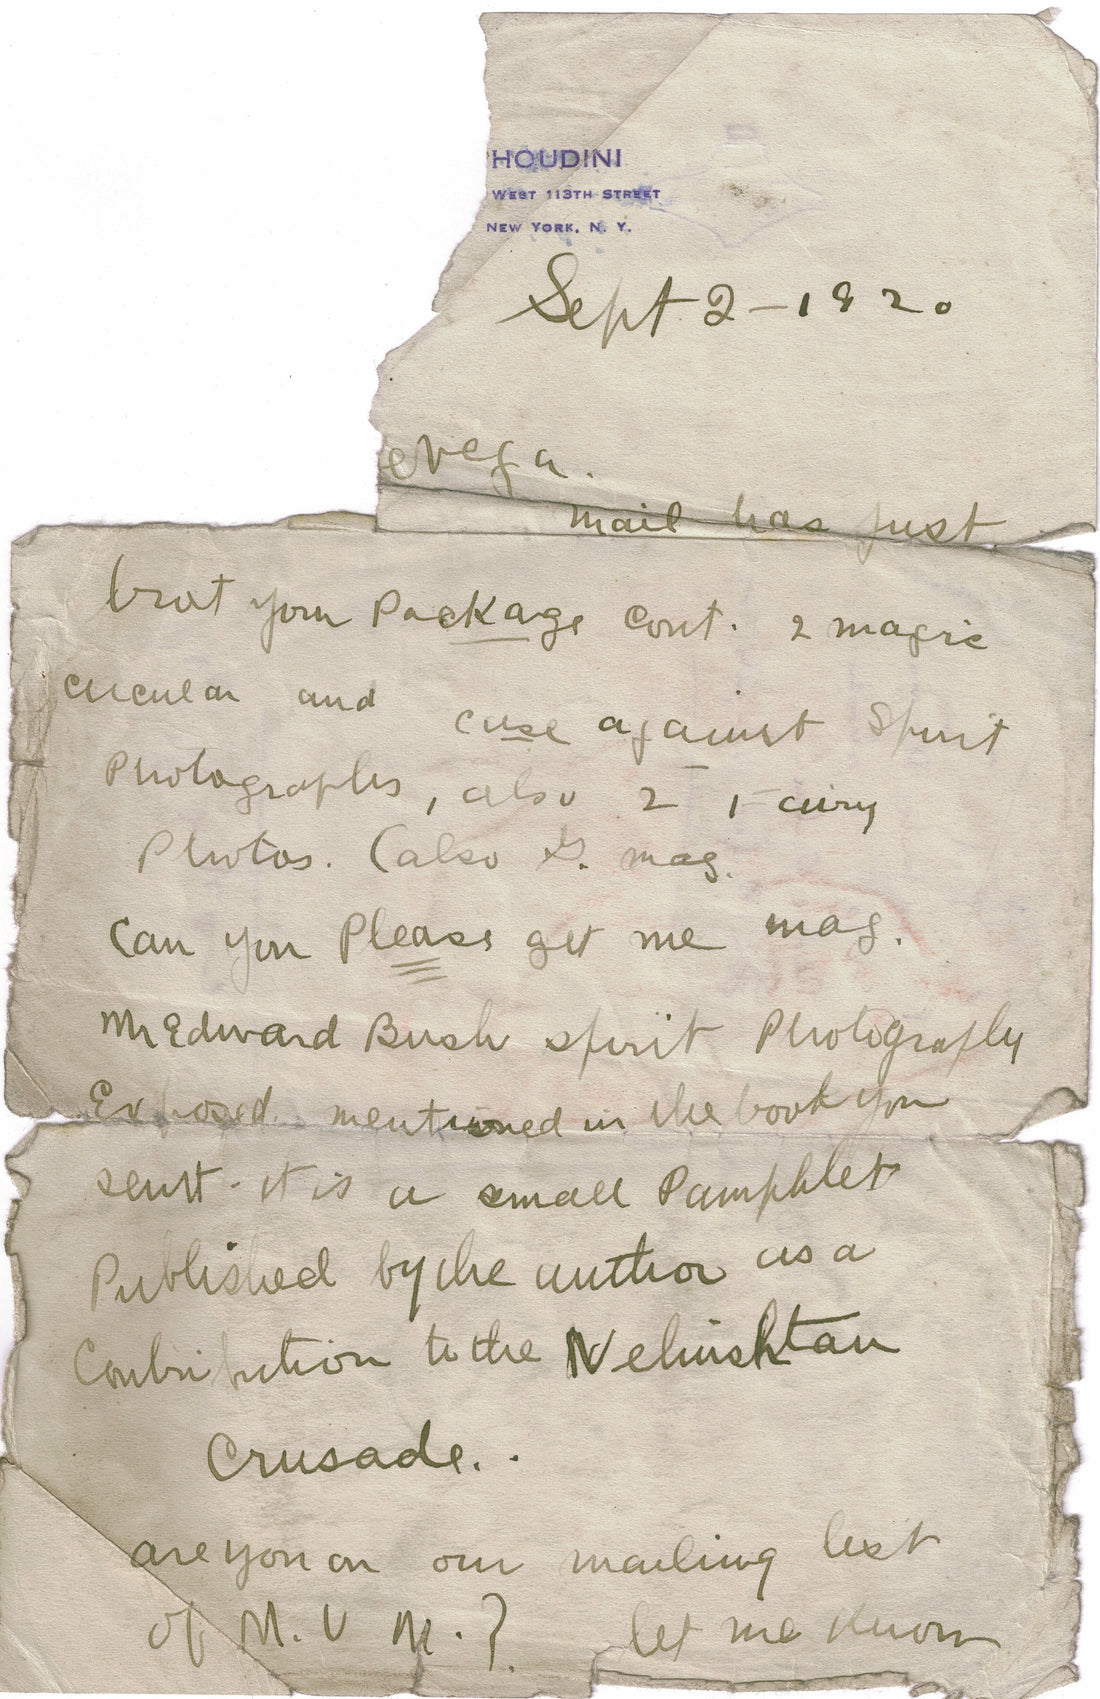 HOUDINI
WEST 113TH STREET
NEW YORK, N. Y.
Sept 2 - 1920
evega.
mail has just
brot your Package cont. 2 magic
circular and case against Spirit
Photographs, also 2 Fairy
Photos. (also G. mag.
Can you Please get me mag.
Mr Edward Bush spirit Photography
Exposed mentioned in the book you
sent. it is a small Pamphlet
Published by the author as a
Contribution to the Nehushtan
Crusade..
are you on our mailing list
of M. U M.? let me know